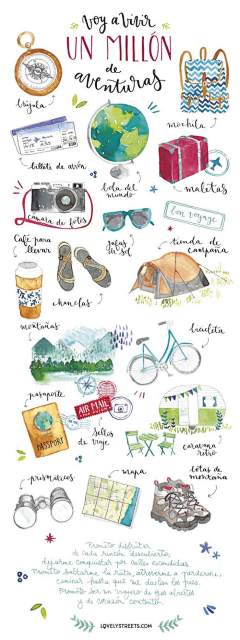 voy a vivir
UN MILLÓN
de
aventuras
brújula
mochila
billete de avión
bola del
mundo
maletas
cámara de fotos
gafas
de sol
bon voyage
Café para
llevar
chanclas
tienda de
campaña
montañas
bicicleta
pasaporte
AIR MAIL
PASSPORT
sellos
de viaje
caravana
retro
prismáticos
mapa
botas de
montaña
Prometo disfrutar
de cada rincón descubierto,
dejarme conquistar por calles escondidas.
Prometo saltarme la ruta, atreverme a perderme,
caminar hasta que me duelan los pies.
Prometo ser un viajero de ojos abiertos
y de corazón contento.
LOVELYSTREETS.COM